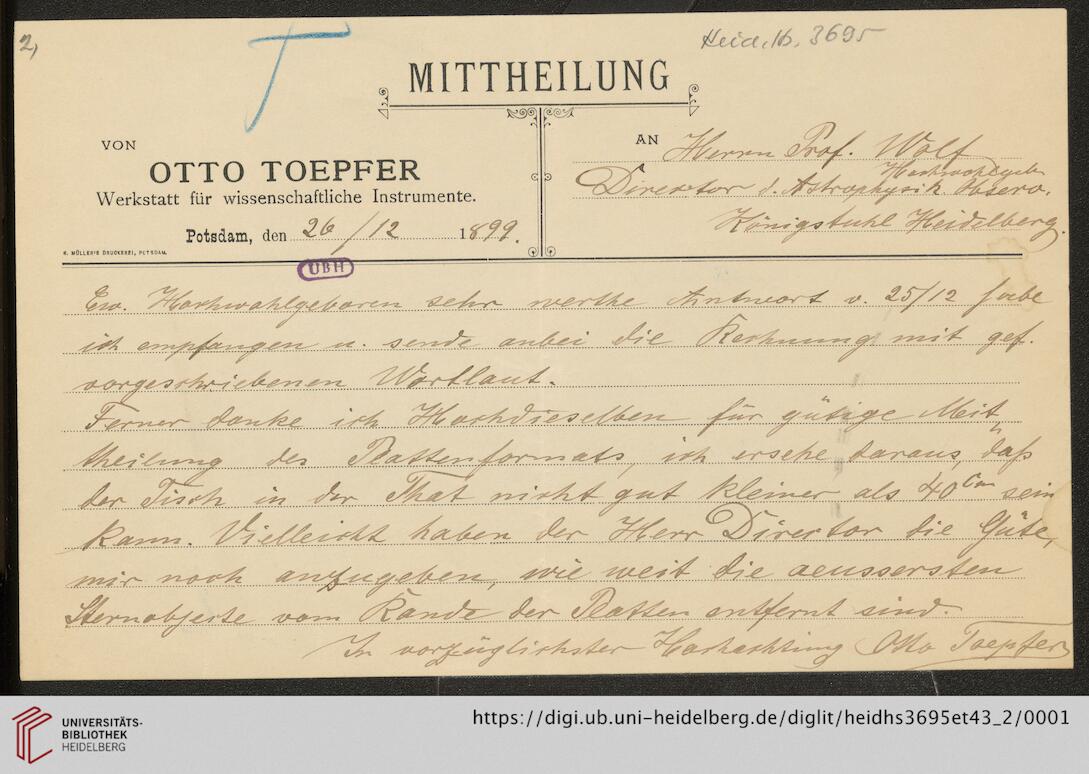 2,
Heid. Hs. 3695
MITTHEILUNG
VON
OTTO TOEPFER
Werkstatt für wissenschaftliche Instrumente.
Potsdam, den 26/12 1899.
K. MÜLLER'S DRUCKEREI, POTSDAM.
AN Herrn Prof. Wolf
Hochwohlgeb.
Director d. Astrophysik. Observ.
Königstuhl Heidelberg.
UBH
Ew. Hochwohlgeboren sehr werthe Antwort v. 25/12 habe
ich empfangen u. sende anbei die Rechnung mit gef.
vorgeschriebenen Wortlaut.
Ferner danke ich Hochdieselben für gütige Mit-
theilung des Plattenformats, ich ersehe daraus, daß
der Tisch in der That nicht gut kleiner als 40 cm sein
kann. Vielleicht haben der Herr Director die Güte,
mir noch anzugeben, wie weit die aeussersten
Sternobjecte vom Rande der Platten entfernt sind.
In vorzüglichster Hochachtung Otto Toepfer
UNIVERSITÄTS-
BIBLIOTHEK
HEIDELBERG
https://digi.ub.uni-heidelberg.de/diglit/heidhs3695et43_2/0001